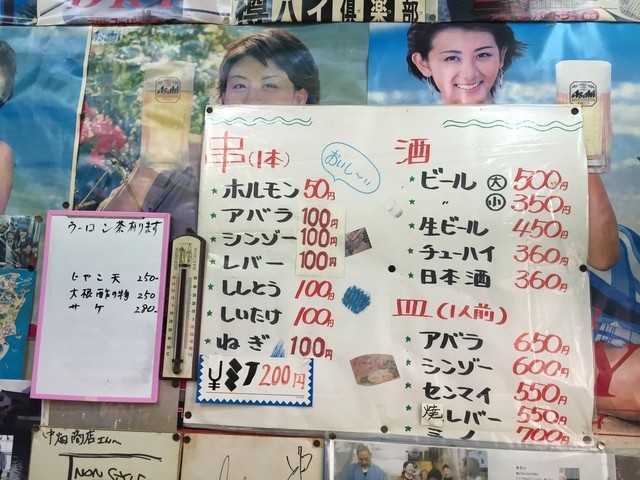 ハイ倶楽部
Asahi
Asahi
ウーロン茶有ります
じゃこ天 250-
大根酢の物 250
サケ 280-
串(1本)
おいし〜い
ホルモン 50円
アバラ 100円
シンゾー 100円
レバー 100円
ししとう 100円
しいたけ 100円
ねぎ 100円
¥ミノ 200円
酒
ビール 大 500円
〃 小 350円
生ビール 450円
チューハイ 360円
日本酒 360円
皿(1人前)
アバラ 650円
シンゾー 600円
センマイ 550円
焼レバー 550円
ミノ 700円
中畑商店さんへ